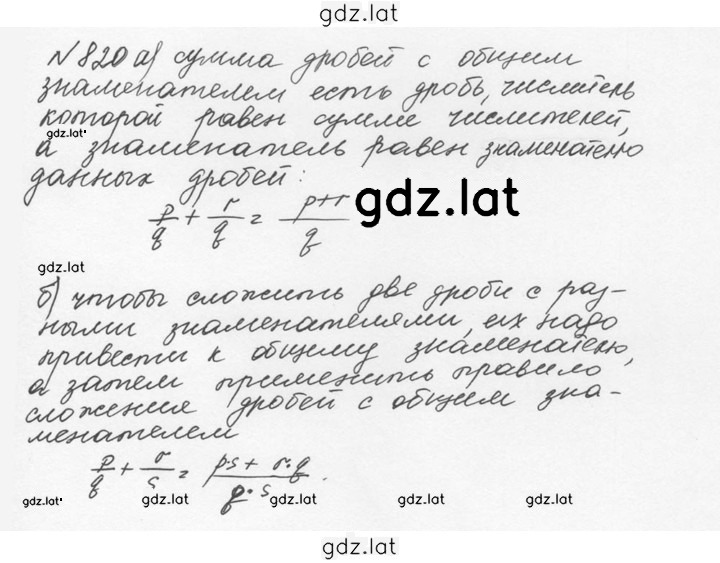 gdz.lat
№ 820 а) сумма дробей с общим
знаменателем есть дробь, числитель
которой равен сумме числителей,
gdz.lat
а знаменатель равен знаменателю
данных дробей:
p/q + r/q = p+r/q
gdz.lat
gdz.lat
б) чтобы сложить две дроби с раз-
ными знаменателями, их надо
привести к общему знаменателю,
а затем применить правило
сложения дробей с общим зна-
менателем
p/q + r/s = p·s + r·q/q·s.
gdz.lat gdz.lat gdz.lat gdz.lat gdz.lat
gdz.lat